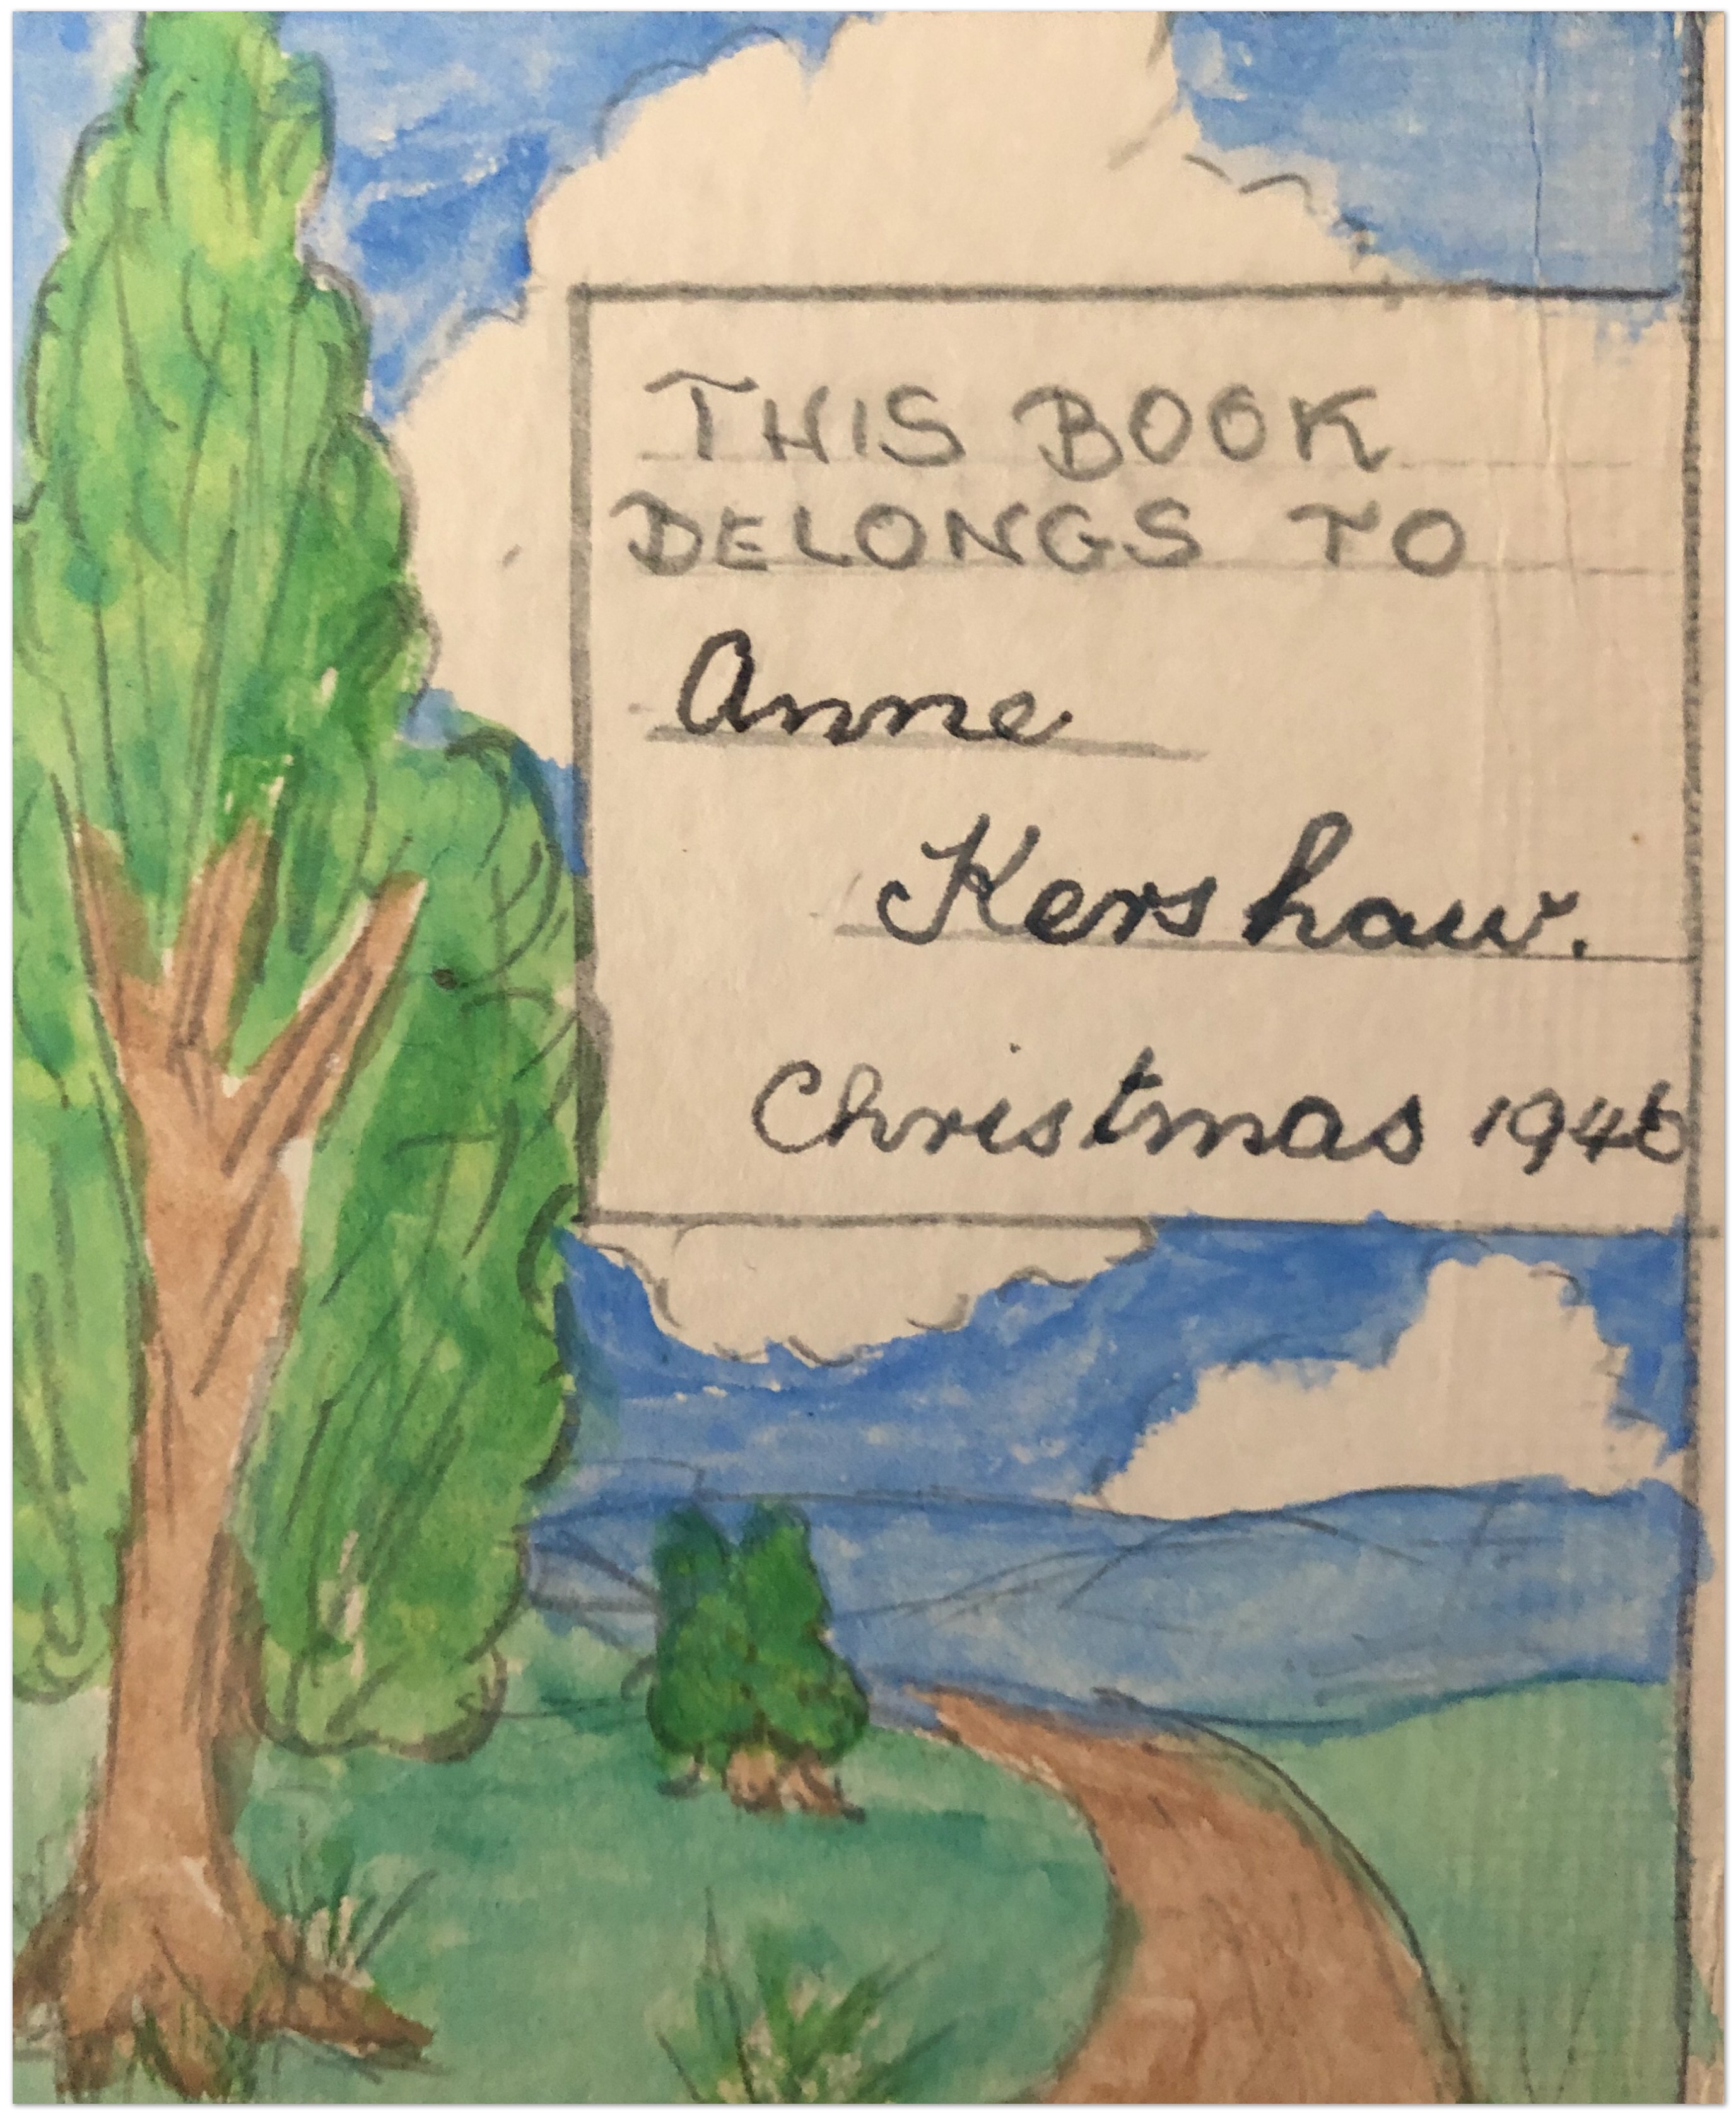 THIS BOOK
BELONGS TO
Anne
Kershaw.
Christmas 1946